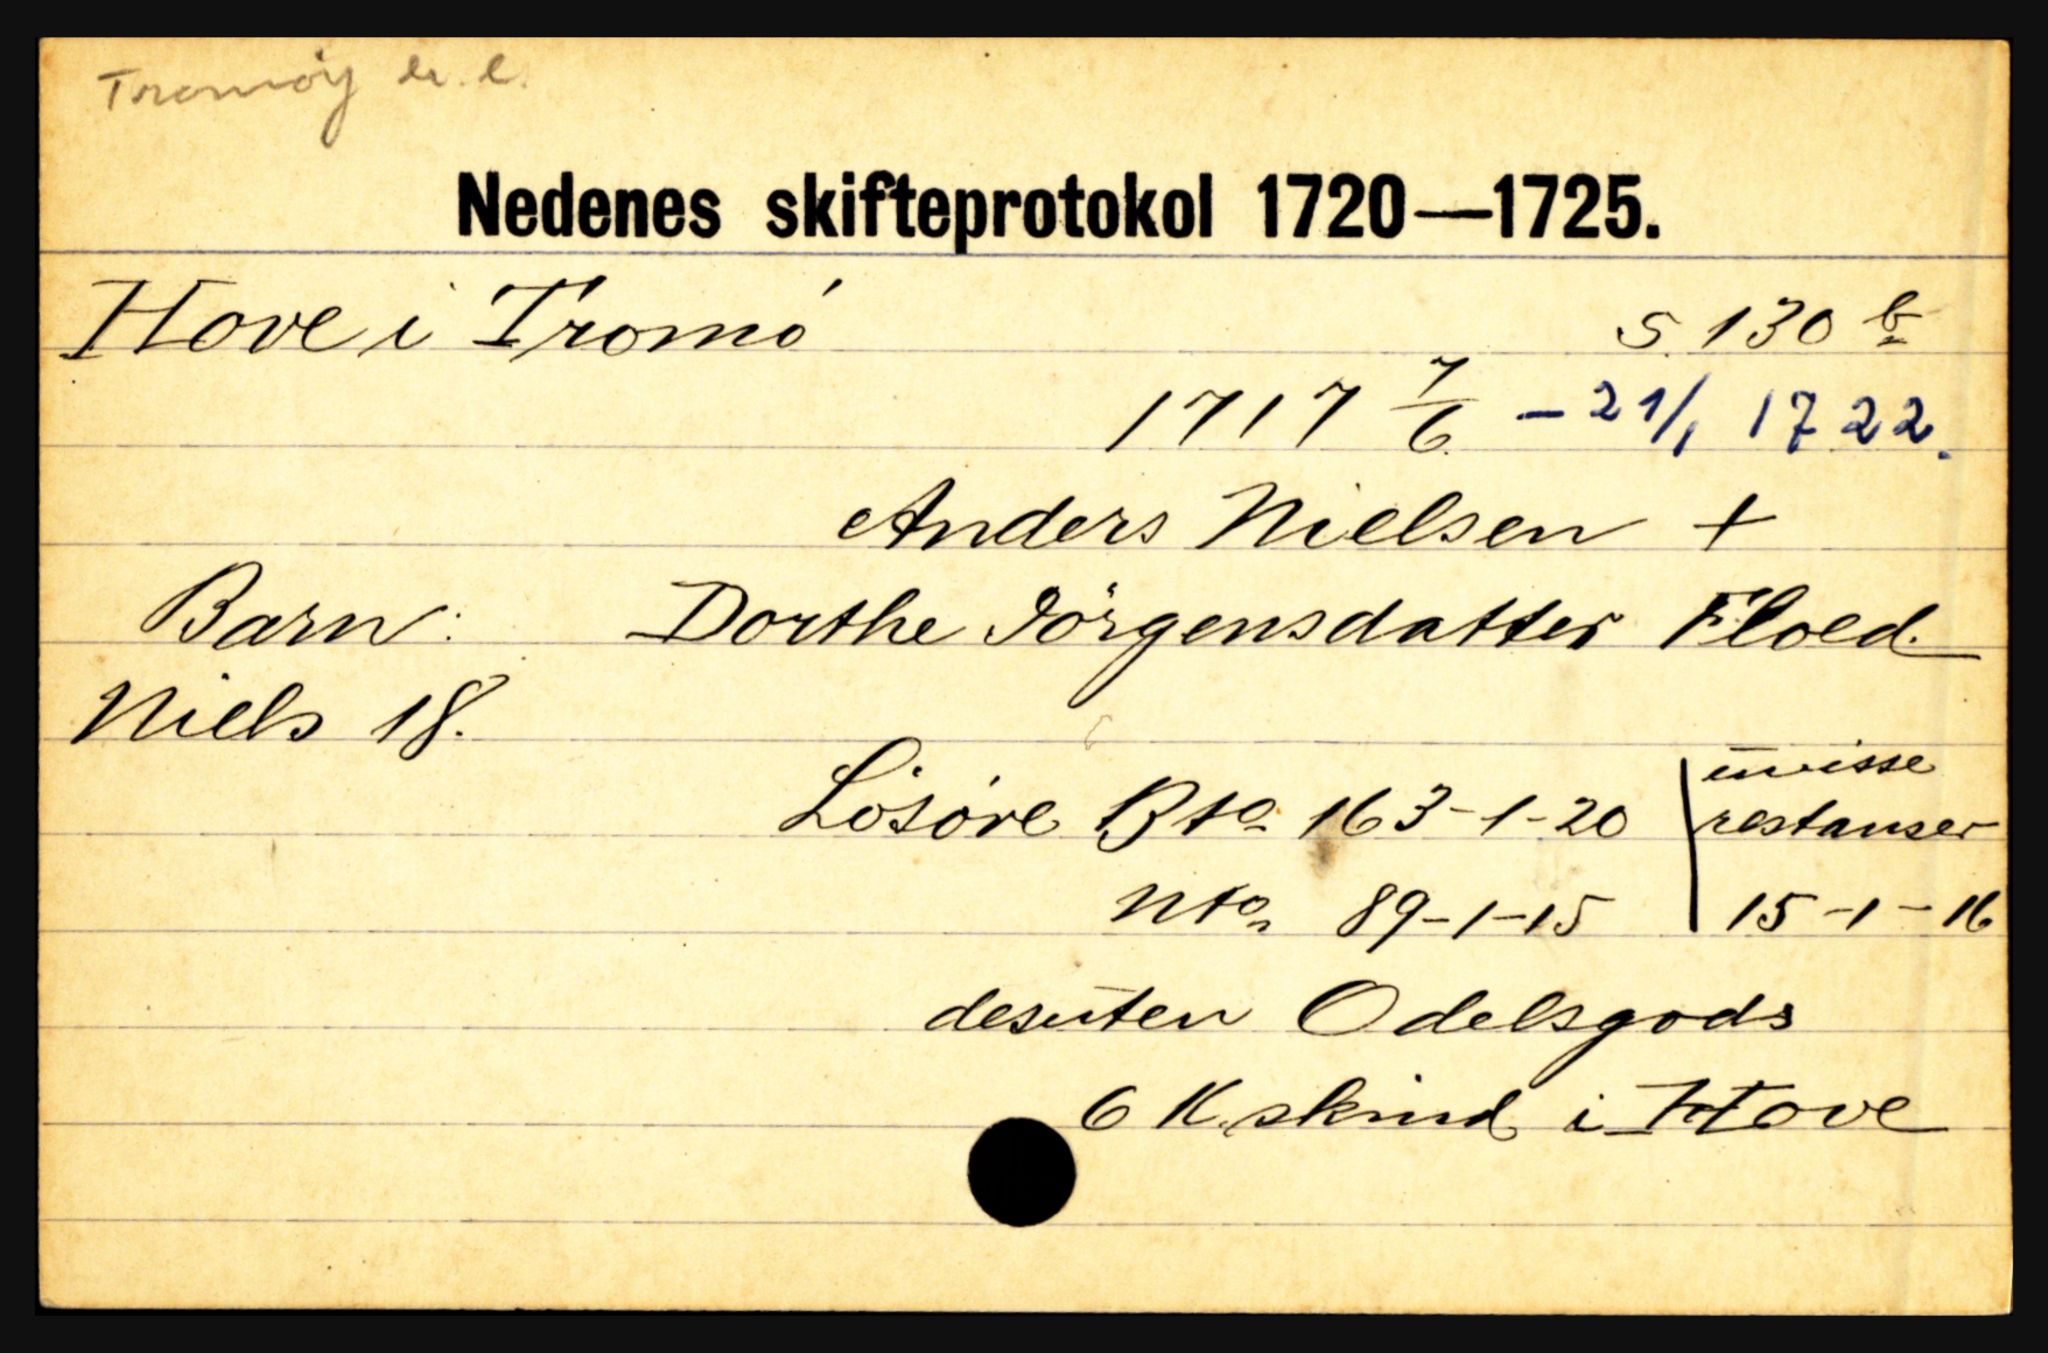 Tromöy
Nedenes skifteprotokol 1720—1725.
Hove i Tromö S. 130 b
1717 7/6 - 21/1 1722.
Anders Nielsen +
Barn: Dorthe Jörgensdatter Floed.
Niels 18.
Lösöre Bto 163-1-20 uvisse
restanser
Nto 89-1-15 15-1-16
desuten Odelsgods
6 K.skind i Hove